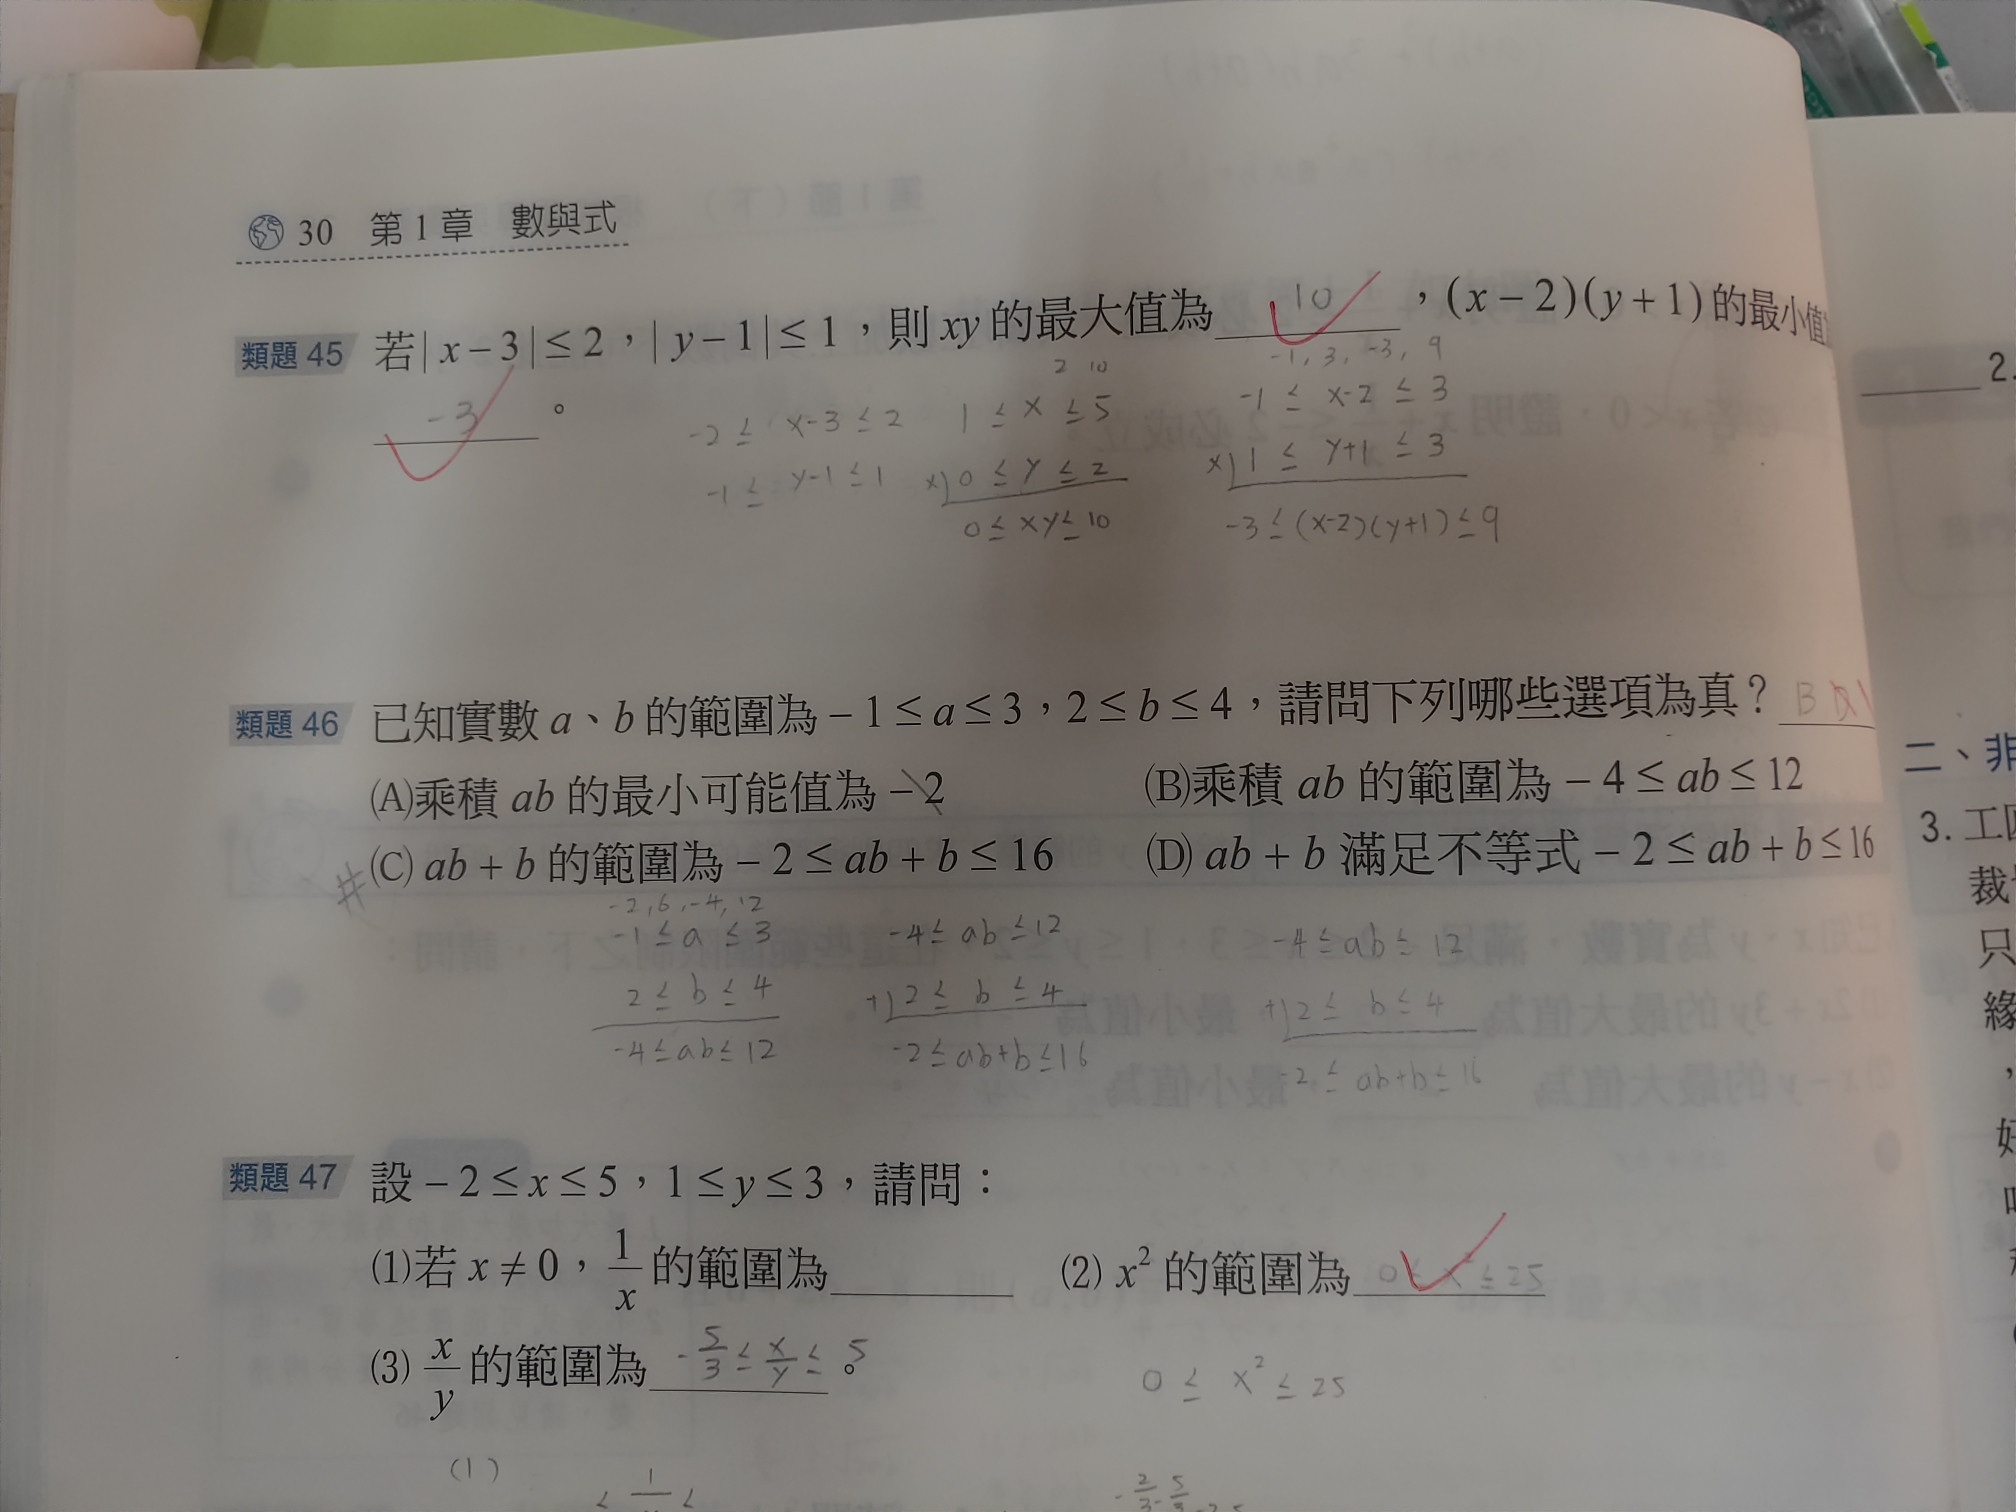 30 第1章 數與式
類題 45 若|x－3|≤2，|y－1|≤1，則xy的最大值為 10 ，(x－2)(y＋1)的最小值
－3 。
2 10
-1, 3, -3, 9
-2 ≤ x-3 ≤ 2 1 ≤ x ≤ 5 -1 ≤ x-2 ≤ 3
-1 ≤ y-1 ≤ 1 x) 0 ≤ y ≤ 2 x) 1 ≤ y+1 ≤ 3
0 ≤ xy ≤ 10 -3 ≤ (x-2)(y+1) ≤ 9
類題 46 已知實數a、b的範圍為－1≤a≤3，2≤b≤4，請問下列哪些選項為真？ B
(A)乘積ab的最小可能值為－2 (B)乘積ab的範圍為－4≤ab≤12
#(C) ab＋b的範圍為－2≤ab＋b≤16 (D) ab＋b滿足不等式－2≤ab＋b≤16
-2, 6, -4, 12
-1 ≤ a ≤ 3 -4 ≤ ab ≤ 12 -4 ≤ ab ≤ 12
2 ≤ b ≤ 4 +) 2 ≤ b ≤ 4 +) 2 ≤ b ≤ 4
-4 ≤ ab ≤ 12 -2 ≤ ab+b ≤ 16 -2 ≤ ab+b ≤ 16
類題 47 設－2≤x≤5，1≤y≤3，請問：
(1)若x≠0，1/x的範圍為 (2) x²的範圍為 0 ≤ x² ≤ 25
(3) x/y的範圍為 -5/3 ≤ x/y ≤ 5 。
0 ≤ x² ≤ 25
(1)
2.
二、非
3. 工
裁
只
緣
，